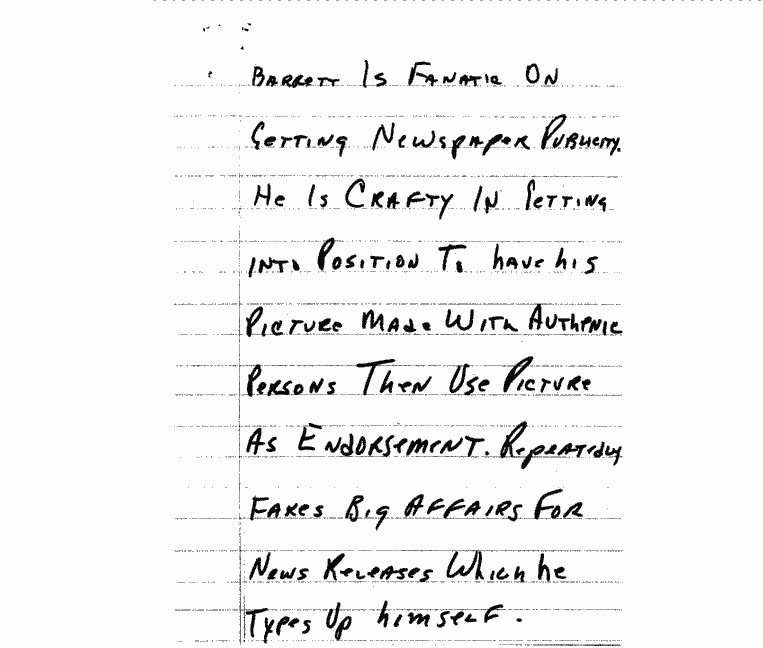 Barrett Is Fanatic On
Getting Newspaper Publicity.
He Is Crafty In Getting
into Position To have his
Picture Made With Authenic
Persons Then Use Picture
As Endorsement. Repeatedly
Fakes Big Affairs For
News Releases Which he
Types Up himself.